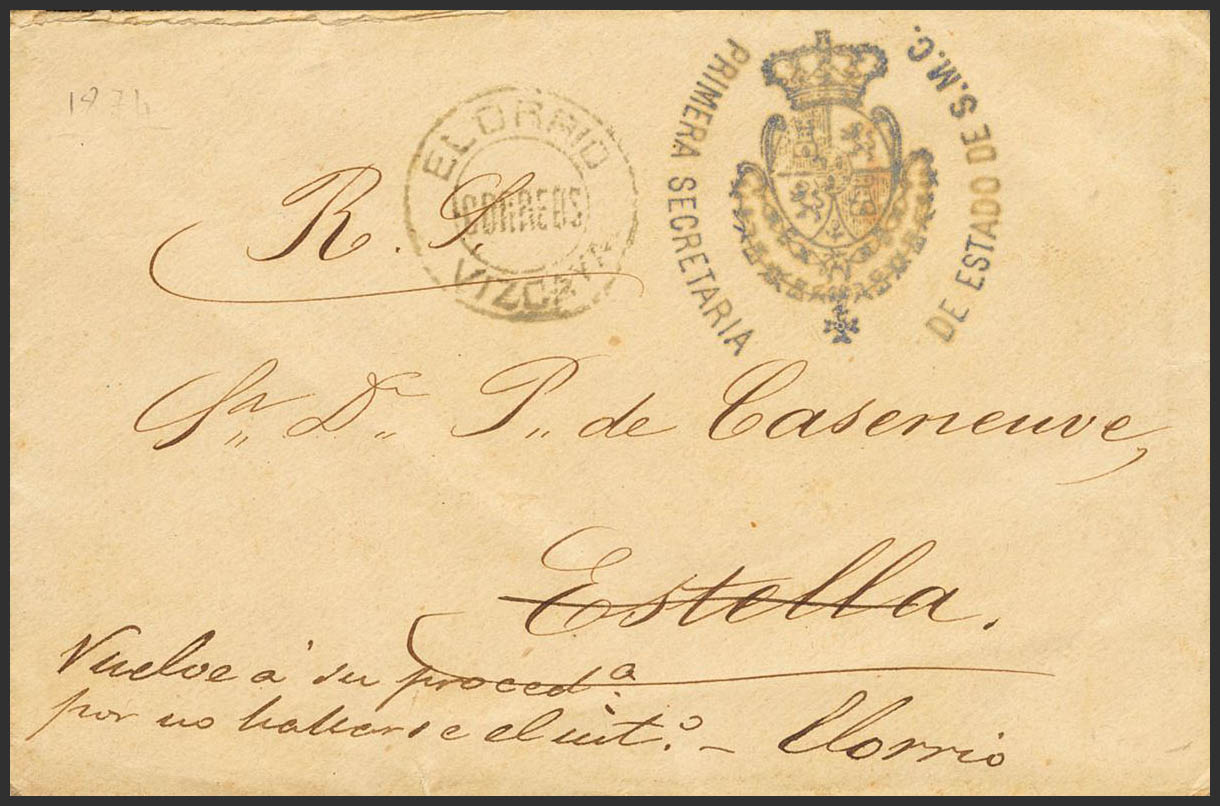 1874
ELORRIO
CORREOS
VIZCAYA
PRIMERA SECRETARIA
DE ESTADO DE S.M.C.
R. S.
Sr. Dn. P. de Caseneuve,
Estella.
Vuelve á su proced.a
por no hallarse el int.o — Elorrio